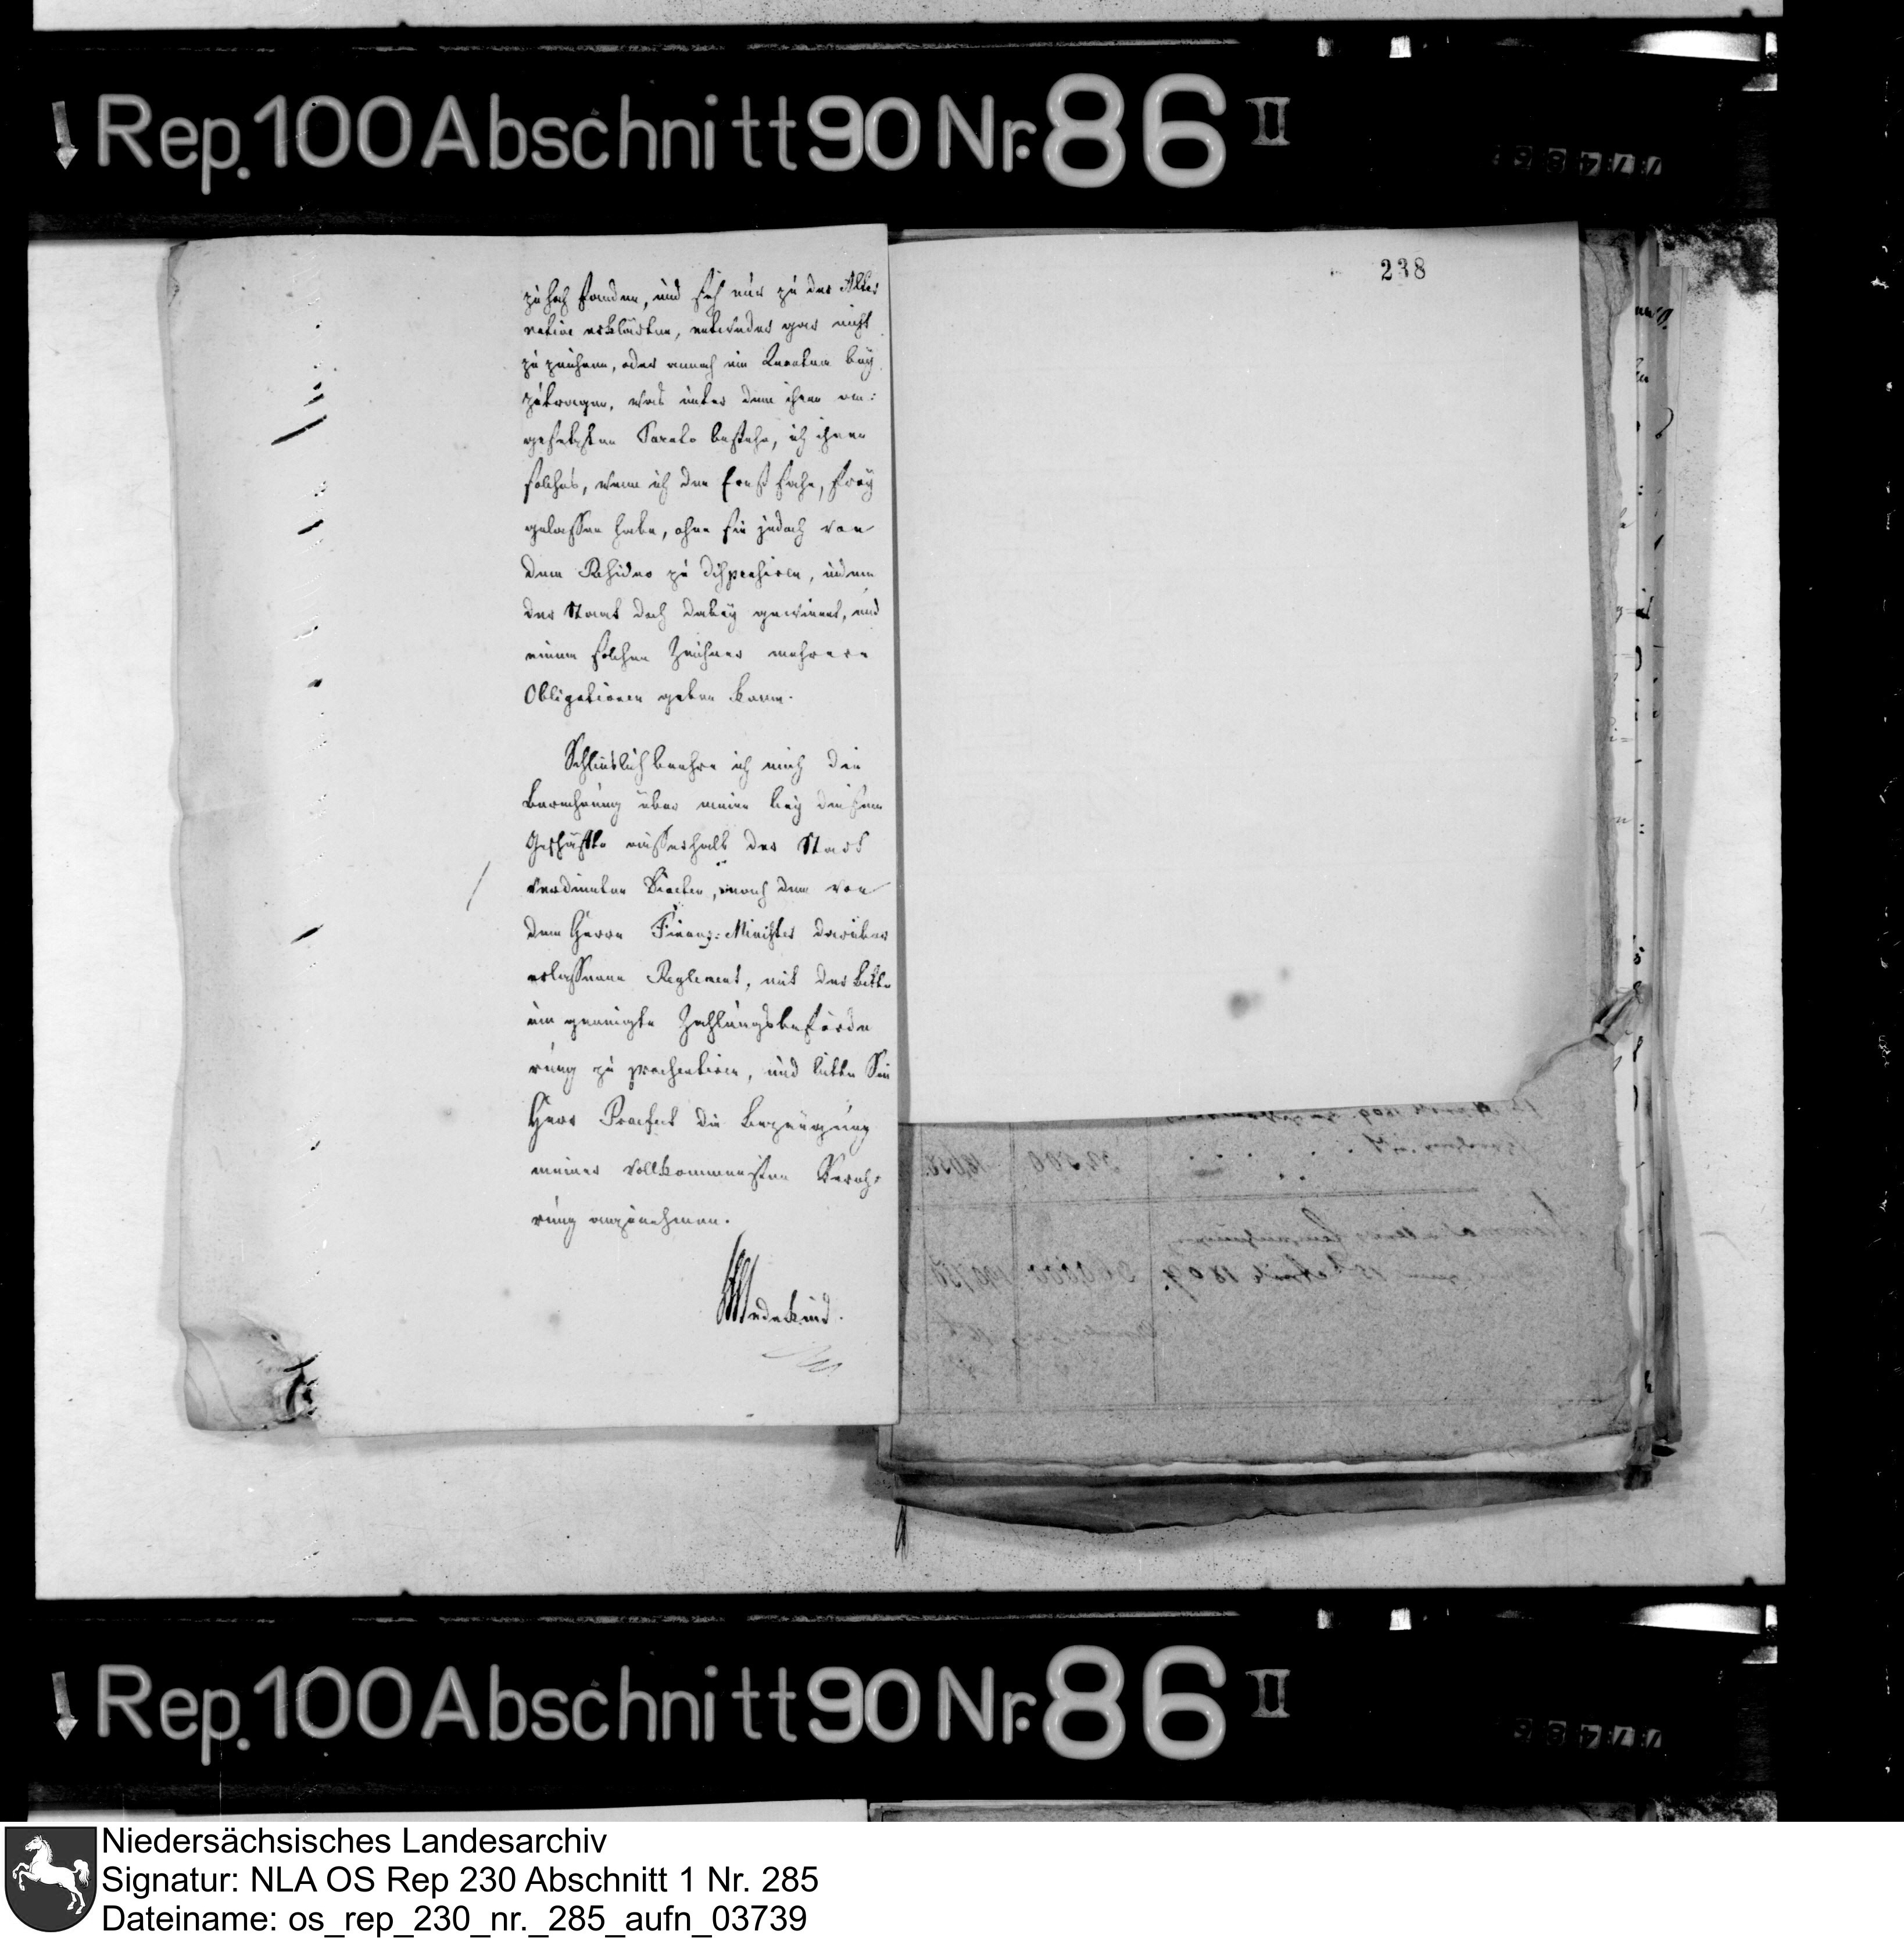 Rep. 100 Abschnitt 90 Nr. 86 II
238
zu hoch fanden, und sich nur zu der Alter
native erklärten, entweder gar nicht
zu zeichnen, oder annoch ein Quantum bey
zutragen, was unter dem ihnen an:
gesetzten Satze bestehe, ich ihnen
solches, wenn ich den Ernst sahe, frey
gelassen habe, ohne sie jedoch von
dem Residuo zu dispensiren, indem
der Staat doch dabey gewinnt, und
einem solchen Zeichner mehrere
Obligationen geben kann.
Schlieslich beehre ich mich die
Berechnung über meine bey diesem
Geschäfte ausserhalb der Stadt
verdienten Diaeten, nach dem von
dem Herrn Finanz-Minister darüber
erlassenen Reglement, mit der Bitte
um geneigte Zahlungsbeförde
rung zu praesentiren, und bitte Sie
Herr Praefect die Bezeugung
meiner vollkommensten Vereh-
rung anzunehmen.
Wedekind.
Rep. 100 Abschnitt 90 Nr. 86 II
Niedersächsisches Landesarchiv
Signatur: NLA OS Rep 230 Abschnitt 1 Nr. 285
Dateiname: os_rep_230_nr._285_aufn_03739